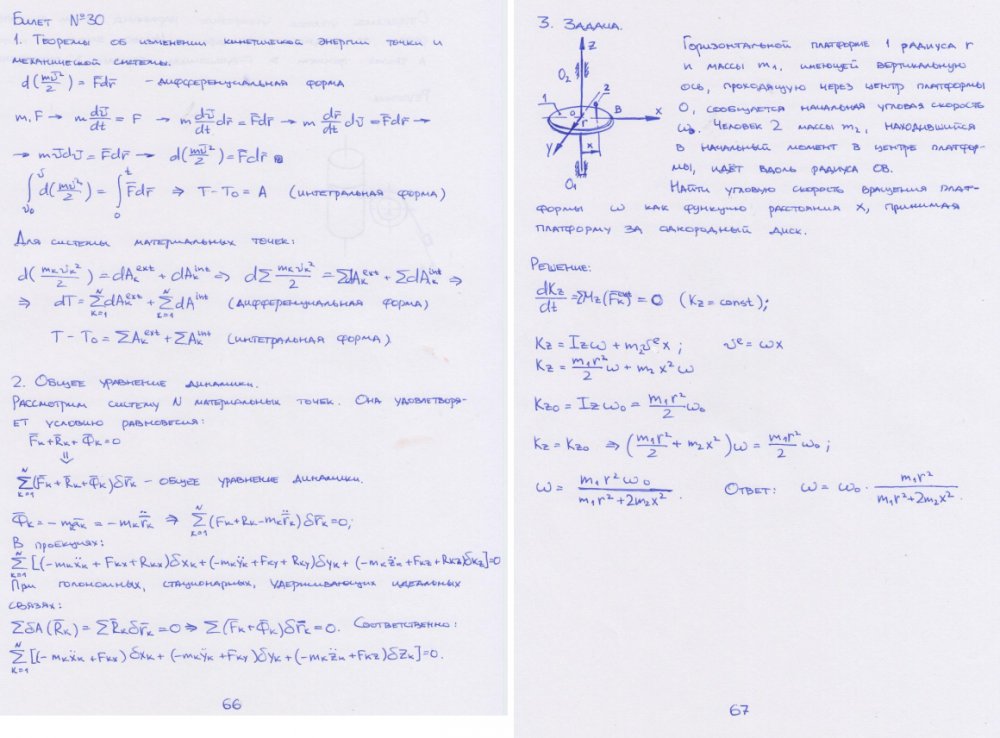 Билет №30
1. Теоремы об изменении кинетической энергии точки и
механической системы.
d(mv̄²/2) = F̄dr̄ – дифференциальная форма
m, F → m dv̄/dt = F → m dv̄/dt dr̄ = F̄dr̄ → m dr̄/dt dv̄ = F̄dr̄ →
→ mv̄dv̄ = F̄dr̄ → d(mv̄²/2) = F̄dr̄
∫d(mv̄²/2) = ∫F̄dr̄ ⇒ T - T₀ = A (интегральная форма)
Для системы материальных точек:
d(mₖvₖ²/2) = dAₖᵉˣᵗ + dAₖⁱⁿᵗ ⇒ dΣ mₖvₖ²/2 = ΣdAₖᵉˣᵗ + ΣdAₖⁱⁿᵗ ⇒
⇒ dT = Σ dAₖᵉˣᵗ + Σ dAⁱⁿᵗ (дифференциальная форма)
T - T₀ = ΣAₖᵉˣᵗ + ΣAₖⁱⁿᵗ (интегральная форма)
2. Общее уравнение динамики.
Рассмотрим систему N материальных точек. Она удовлетворя-
ет условию равновесия:
F̄ₖ + R̄ₖ + Φ̄ₖ = 0
⇓
Σ(F̄ₖ + R̄ₖ + Φ̄ₖ)δr̄ₖ – общее уравнение динамики.
Φ̄ₖ = -mₖāₖ = -mₖr̈ₖ ⇒ Σ(Fₖ + Rₖ - mₖr̈ₖ)δr̄ₖ = 0;
В проекциях:
Σ[(-mₖẍₖ + Fₖₓ + Rₖₓ)δxₖ + (-mₖÿₖ + Fₖy + Rₖy)δyₖ + (-mₖz̈ₖ + Fₖz + Rₖz)δₖz] = 0
При голономных, стационарных, удерживающих идеальных
связях:
ΣδA(R̄ₖ) = ΣR̄ₖδr̄ₖ = 0 ⇒ Σ(F̄ₖ + Φ̄ₖ)δr̄ₖ = 0. Соответственно:
Σ[(-mₖẍₖ + Fₖₓ)δxₖ + (-mₖÿₖ + Fₖy)δyₖ + (-mₖz̈ₖ + Fₖz)δzₖ] = 0.
66
3. Задача.
z
O₂
1
2
o
r
B
x
y
x
O₁
Горизонтальной платформе 1 радиуса r
и массы m₁, имеющей вертикальную
ось, проходящую через центр платформы
O, сообщается начальная угловая скорость
ω₀. Человек 2 массы m₂, находившийся
в начальный момент в центре платфор-
мы, идёт вдоль радиуса OB.
Найти угловую скорость вращения плат-
формы ω как функцию расстояния x, принимая
платформу за однородный диск.
Решение:
dKz/dt = ΣMz(F̄ₖᵉˣᵗ) = 0 (Kz = const);
Kz = Izω + m₂vᵉx; vᵉ = ωx
Kz = m₁r²/2 ω + m₂x²ω
Kz₀ = Izω₀ = m₁r²/2 ω₀
Kz = Kz₀ ⇒ (m₁r²/2 + m₂x²)ω = m₁r²/2 ω₀;
ω = m₁r²ω₀/(m₁r² + 2m₂x²). Ответ: ω = ω₀ · m₁r²/(m₁r² + 2m₂x²).
67